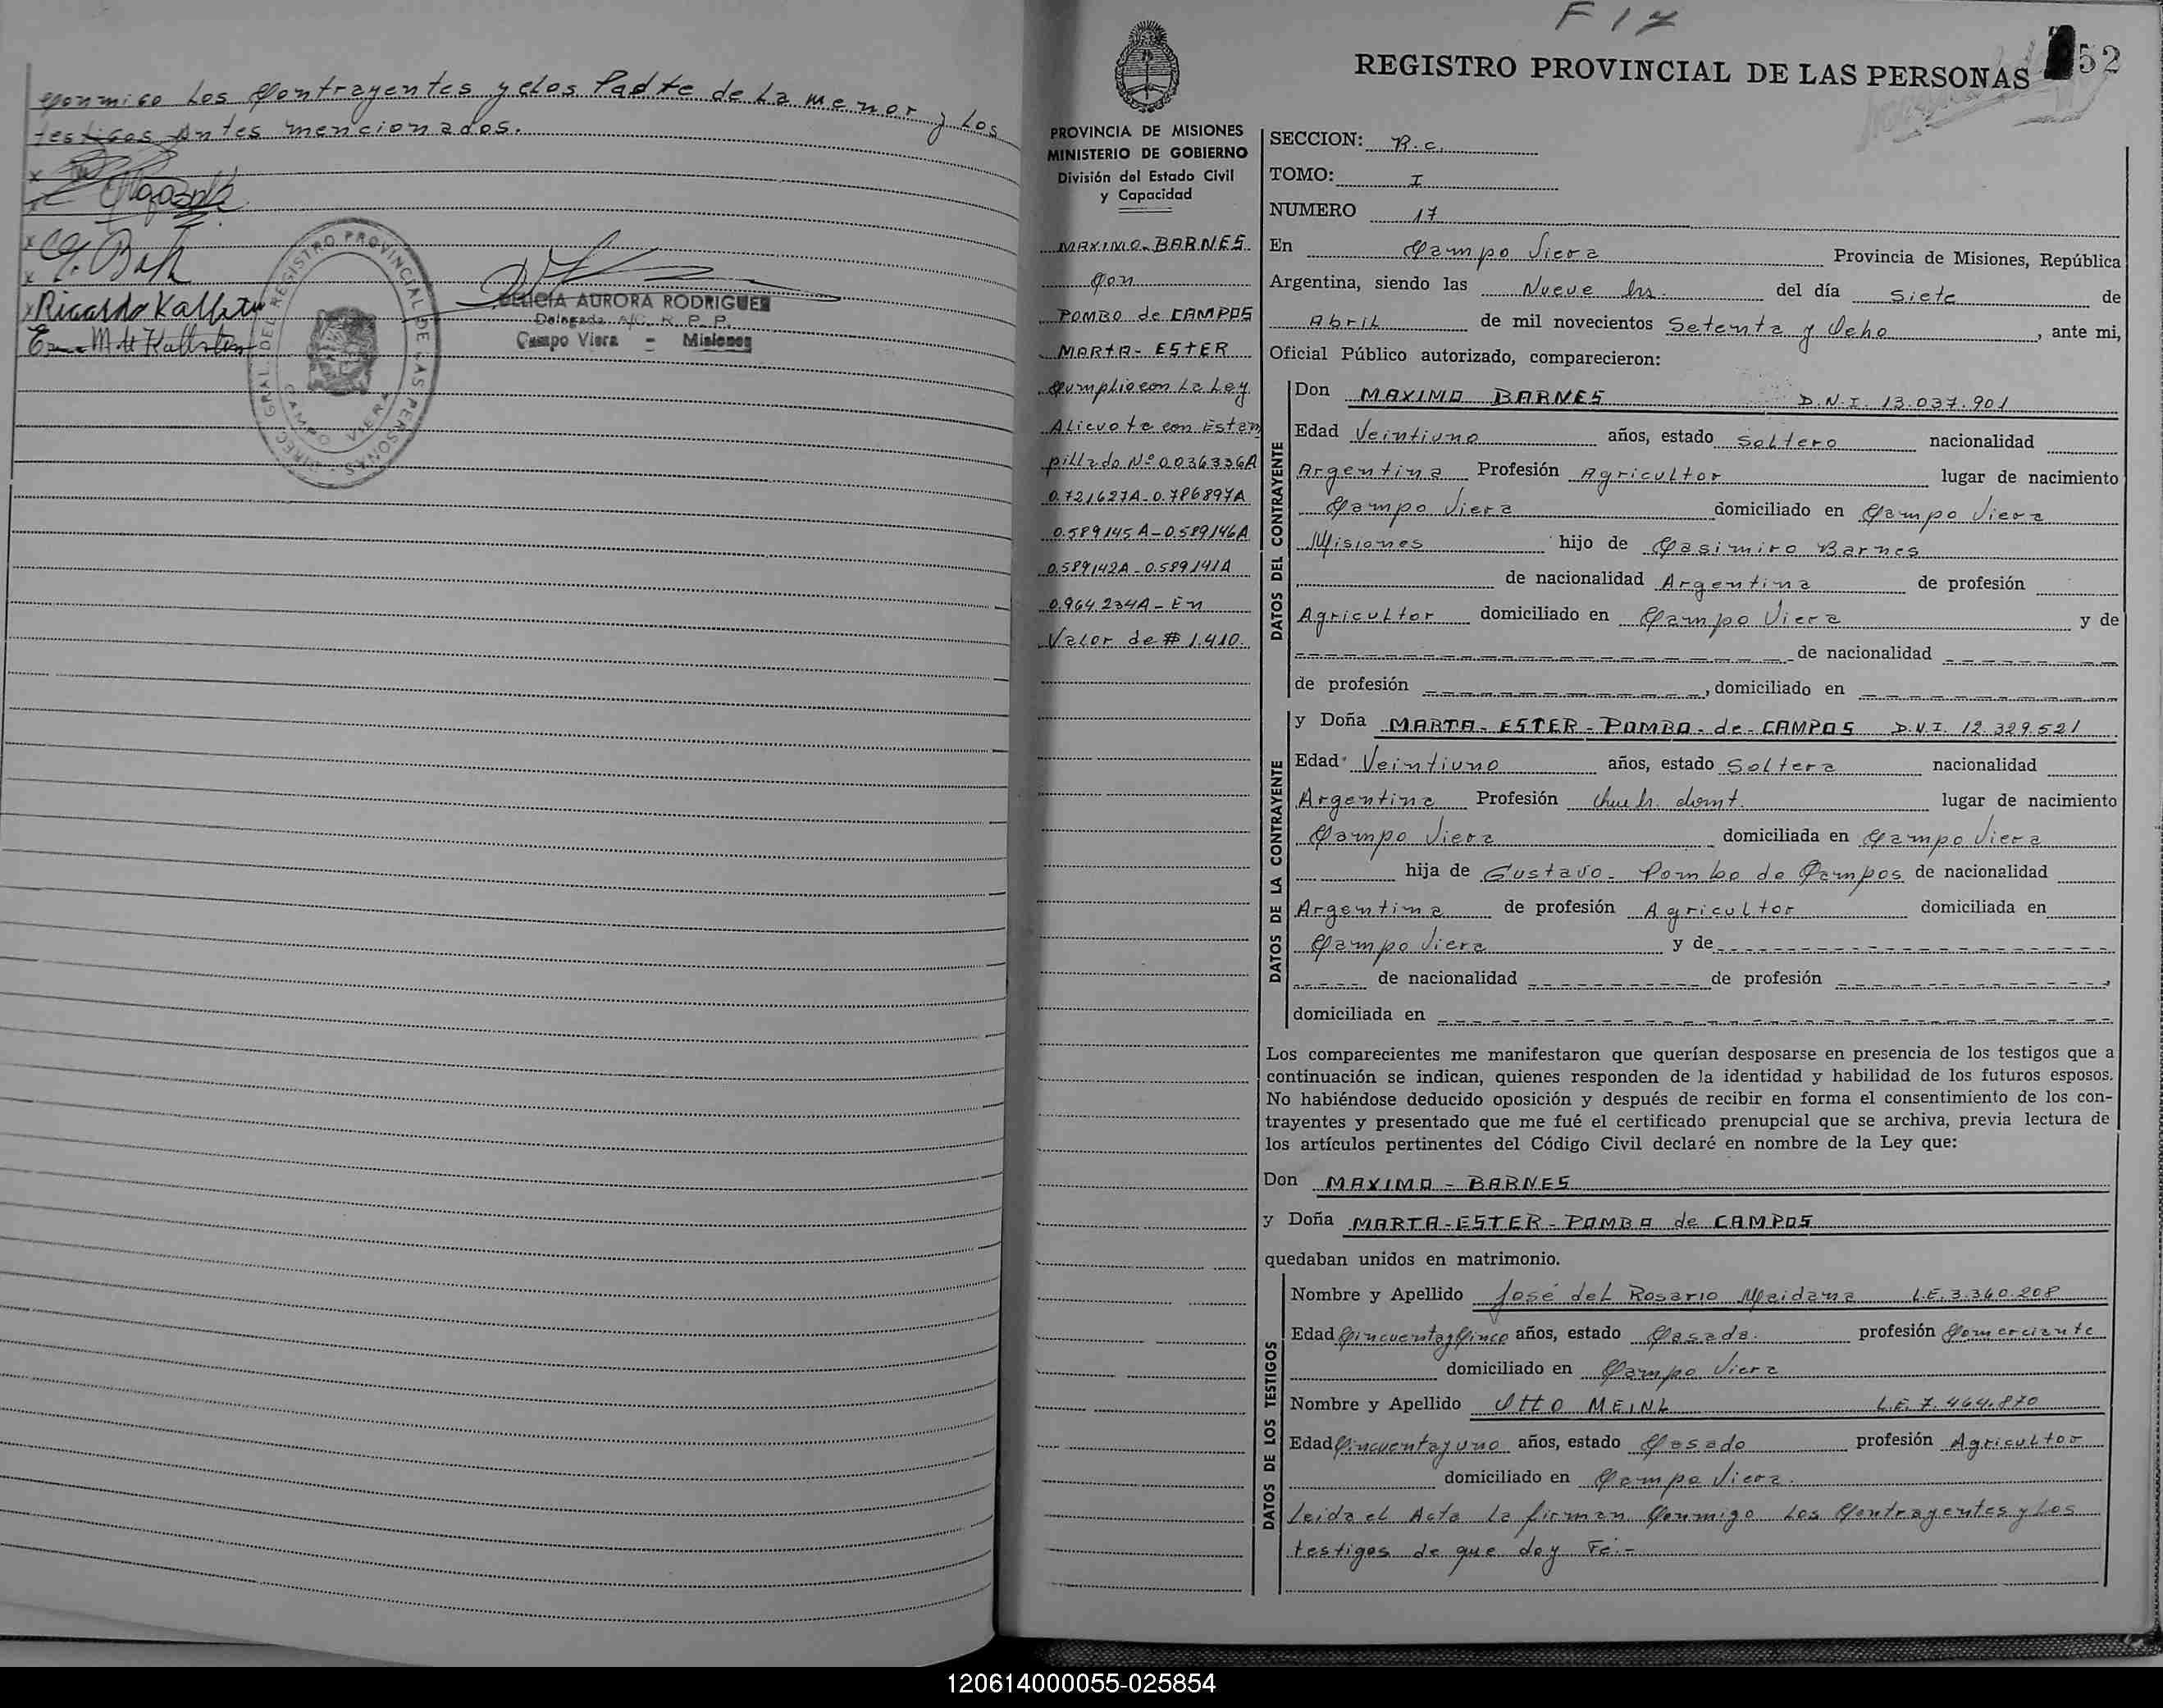 conmigo Los Contrayentes y elos Padte de La menor y Los
testigos Antes mencionados.
x
x
x
x
x Ricardo Kallsten
DIREC. GRAL. DEL REGISTRO PROVINCIAL DE LAS PERSONAS
CAMPO VIERA
AURORA RODRIGUEZ
Delegada A/C. R. P. P.
Campo Viera - Misiones
F 17
52
REGISTRO PROVINCIAL DE LAS PERSONAS
PROVINCIA DE MISIONES
MINISTERIO DE GOBIERNO
División del Estado Civil
y Capacidad
MAXIMO-BARNES
Con
POMBO de CAMPOS
MARTA-ESTER
Cumplio con La Ley
ALicuota con Estam
pillado Nº 0.036336A
0.721627A-0.786897A
0.589145A-0.589146A
0.589142A-0.589141A
0.964.234A-En
Valor de $ 1.410.
SECCION: R.c.
TOMO: I
NUMERO 17
En Campo Viera Provincia de Misiones, República
Argentina, siendo las Nueve hs. del día Siete de
Abril de mil novecientos Setenta y Ocho, ante mi,
Oficial Público autorizado, comparecieron:
DATOS DEL CONTRAYENTE
Don MAXIMO BARNES D.N.I. 13.037.901
Edad Veintiuno años, estado Soltero nacionalidad
Argentina Profesión Agricultor lugar de nacimiento
Campo Viera domiciliado en Campo Viera
Misiones hijo de Casimiro Barnes
de nacionalidad Argentina de profesión
Agricultor domiciliado en Campo Viera y de
de nacionalidad
de profesión , domiciliado en
DATOS DE LA CONTRAYENTE
y Doña MARTA-ESTER-POMBO-de-CAMPOS D.N.I. 12.329.521
Edad Veintiuno años, estado Soltera nacionalidad
Argentina Profesión lugar de nacimiento
Campo Viera domiciliada en Campo Viera
hija de Gustavo-Pombo de Campos de nacionalidad
Argentina de profesión Agricultor domiciliada en
Campo Viera y de
de nacionalidad de profesión
domiciliada en
Los comparecientes me manifestaron que querían desposarse en presencia de los testigos que a
continuación se indican, quienes responden de la identidad y habilidad de los futuros esposos.
No habiéndose deducido oposición y después de recibir en forma el consentimiento de los con-
trayentes y presentado que me fué el certificado prenupcial que se archiva, previa lectura de
los artículos pertinentes del Código Civil declaré en nombre de la Ley que:
Don MAXIMO-BARNES
y Doña MARTA-ESTER-POMBO de CAMPOS
quedaban unidos en matrimonio.
DATOS DE LOS TESTIGOS
Nombre y Apellido José deL Rosario Maidana L.E. 3.360.208
Edad CincuentayCinco años, estado Casada. profesión Comerciante
domiciliado en Campo Viera
Nombre y Apellido Otto MEINL L.E. 7.464.870
Edad Cincuentayuno años, estado Casado profesión Agricultor
domiciliado en Campo Viera.
Leida el Acta La firman Conmigo Los Contrayentes y Los
testigos de que doy Fé.-
120614000055-025854